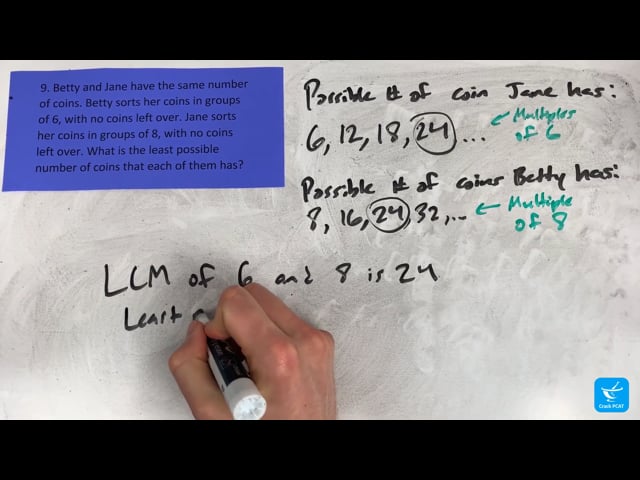 9. Betty and Jane have the same number
of coins. Betty sorts her coins in groups
of 6, with no coins left over. Jane sorts
her coins in groups of 8, with no coins
left over. What is the least possible
number of coins that each of them has?
Possible # of coin Jane has:
6, 12, 18, 24 ... ← Multiples
of 6
Possible # of coins Betty has:
8, 16, 24, 32, ... ← Multiple
of 8
LCM of 6 and 8 is 24
Least
Crack PCAT